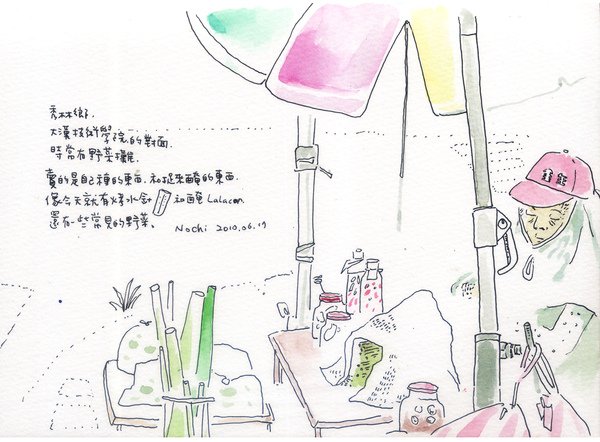 秀林鄉.
大漢技術學院的對面.
時常有野菜攤.
賣的是自己種的東西. 和挺來醃的東西.
像今天就有烤水針 和醃 Lalacon
還有一些常見的野菜、
Nochi 2010.06.17